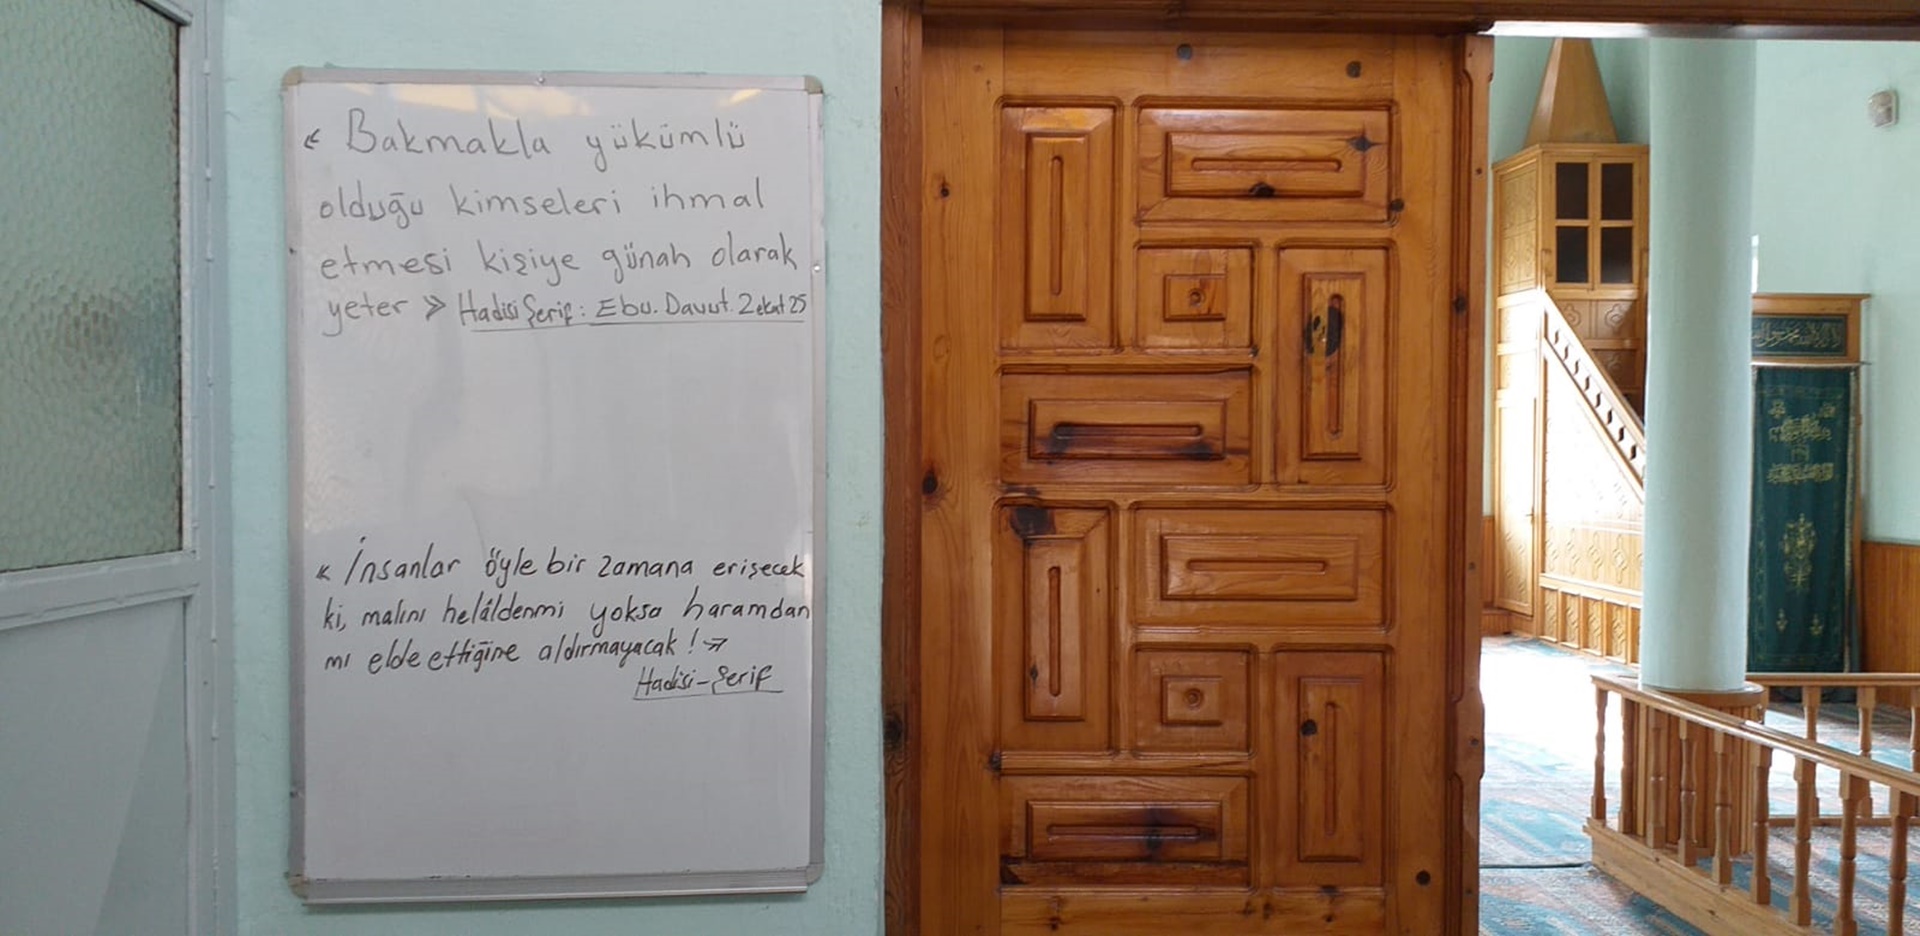 « Bakmakla yükümlü
olduğu kimseleri ihmal
etmesi kişiye günah olarak
yeter » Hadisi Şerif: Ebu. Davut. Zekat 25
« İnsanlar öyle bir zamana erişecek
ki, malını helâldenmi yoksa haramdan
mı elde ettiğine aldırmayacak! »
Hadisi-Şerif